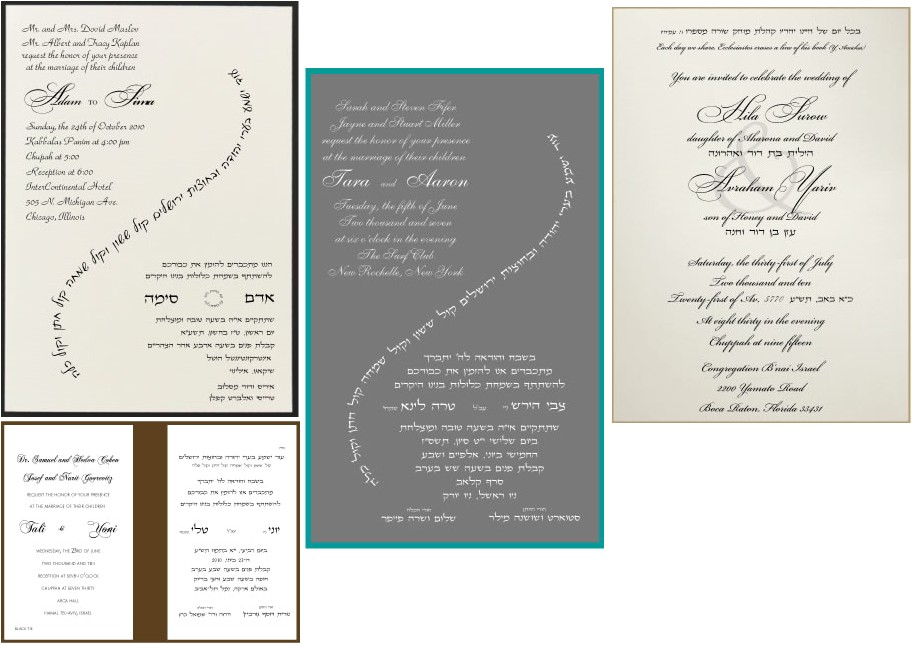 Mr. and Mrs. David Maslov
Mr. Albert and Tracy Kaplan
request the honor of your presence
at the marriage of their children
Adam TO Sima
Sunday, the 24th of October 2010
Kabbalas Panim at 4:00 pm
Chupah at 5:00
Reception at 6:00
InterContinental Hotel
505 N. Michigan Ave.
Chicago, Illinois
עוד ישמע בערי יהודה ובחוצות ירושלים קול ששון וקול שמחה קול חתן וקול כלה
הננו מתכבדים להזמין את כבודכם
להשתתף בשמחת כלולות בנינו היקרים
אדם סימה
שתתקיים אי״ה בשעה טובה ומוצלחת
יום ראשון, ט״ז בחשון, תשע״א
קבלת פנים בשעה ארבע אחר הצהריים
אינטרקונטיננטל הוטל
שיקאגו, אילינוי
איריס ודוד מסלוב
טרייסי ואלברט קפלן
Sarah and Steven Fifer
Jayne and Stuart Miller
request the honor of your presence
at the marriage of their children
Tara and Aaron
Tuesday, the fifth of June
Two thousand and seven
at six o'clock in the evening
The Surf Club
New Rochelle, New York
עוד ישמע בערי יהודה ובחוצות ירושלים קול ששון וקול שמחה קול חתן וקול כלה
בשבח והודאה לה׳ יתברך
מתכבדים אנו להזמין את כבודכם
להשתתף בשמחת כלולות בנינו היקרים
צבי הירש עב״ג טרה לינא
שתתקיים אי״ה בשעה טובה ומוצלחת
ביום שלישי י״ט סיון, תשס״ז
החמישי ביוני, אלפיים ושבע
קבלת פנים בשעה שש בערב
סרף קלאב
ניו ראשל, ניו יורק
הורי החתן הורי הכלה
סטוארט ושושנה מילר שלום ושרה פייפר
בכל יום של חיינו יחדיו קהלת מוחק שורה מספרו
Each day we share, Ecclesiastes erases a line of his book (Y. Amichai)
You are invited to celebrate the wedding of
Hila Surow
daughter of Aharona and David
הילית בת דוד ואהרונה
&
Avraham Yariv
son of Honey and David
עוץ בן דוד וחנה
Saturday, the thirty-first of July
Two thousand and ten
Twenty-first of Av, 5770 כ״א באב, תש״ע
At eight thirty in the evening
Chuppah at nine fifteen
Congregation B'nai Israel
2200 Yamato Road
Boca Raton, Florida 33431
Dr. Samuel and Hedva Cohen
Josef and Nurit Gourevitz
REQUEST THE HONOR OF YOUR PRESENCE
AT THE MARRIAGE OF THEIR CHILDREN
Tali & Yoni
WEDNESDAY, THE 23RD OF JUNE
TWO THOUSAND AND TEN
RECEPTION AT SEVEN O'CLOCK
CHUPPAH AT SEVEN THIRTY
ARCA HALL
NAMAL TEL-AVIV, ISRAEL
BLACK TIE
עוד ישמע בערי יהודה ובחוצות ירושלים
קול ששון וקול שמחה קול חתן וקול כלה
בשבח והודאה לה׳ יתברך
מתכבדים אנו להזמין את כבודכם
להשתתף בשמחת כלולות בנינו היקרים
יוני עב״ג טלי
ביום רביעי, י״א בתמוז תש״ע,
קבלת פנים בשעה שבע בערב
חופה בשעה שבע וחצי בדיוק
באולם ארקה, נמל תל-אביב